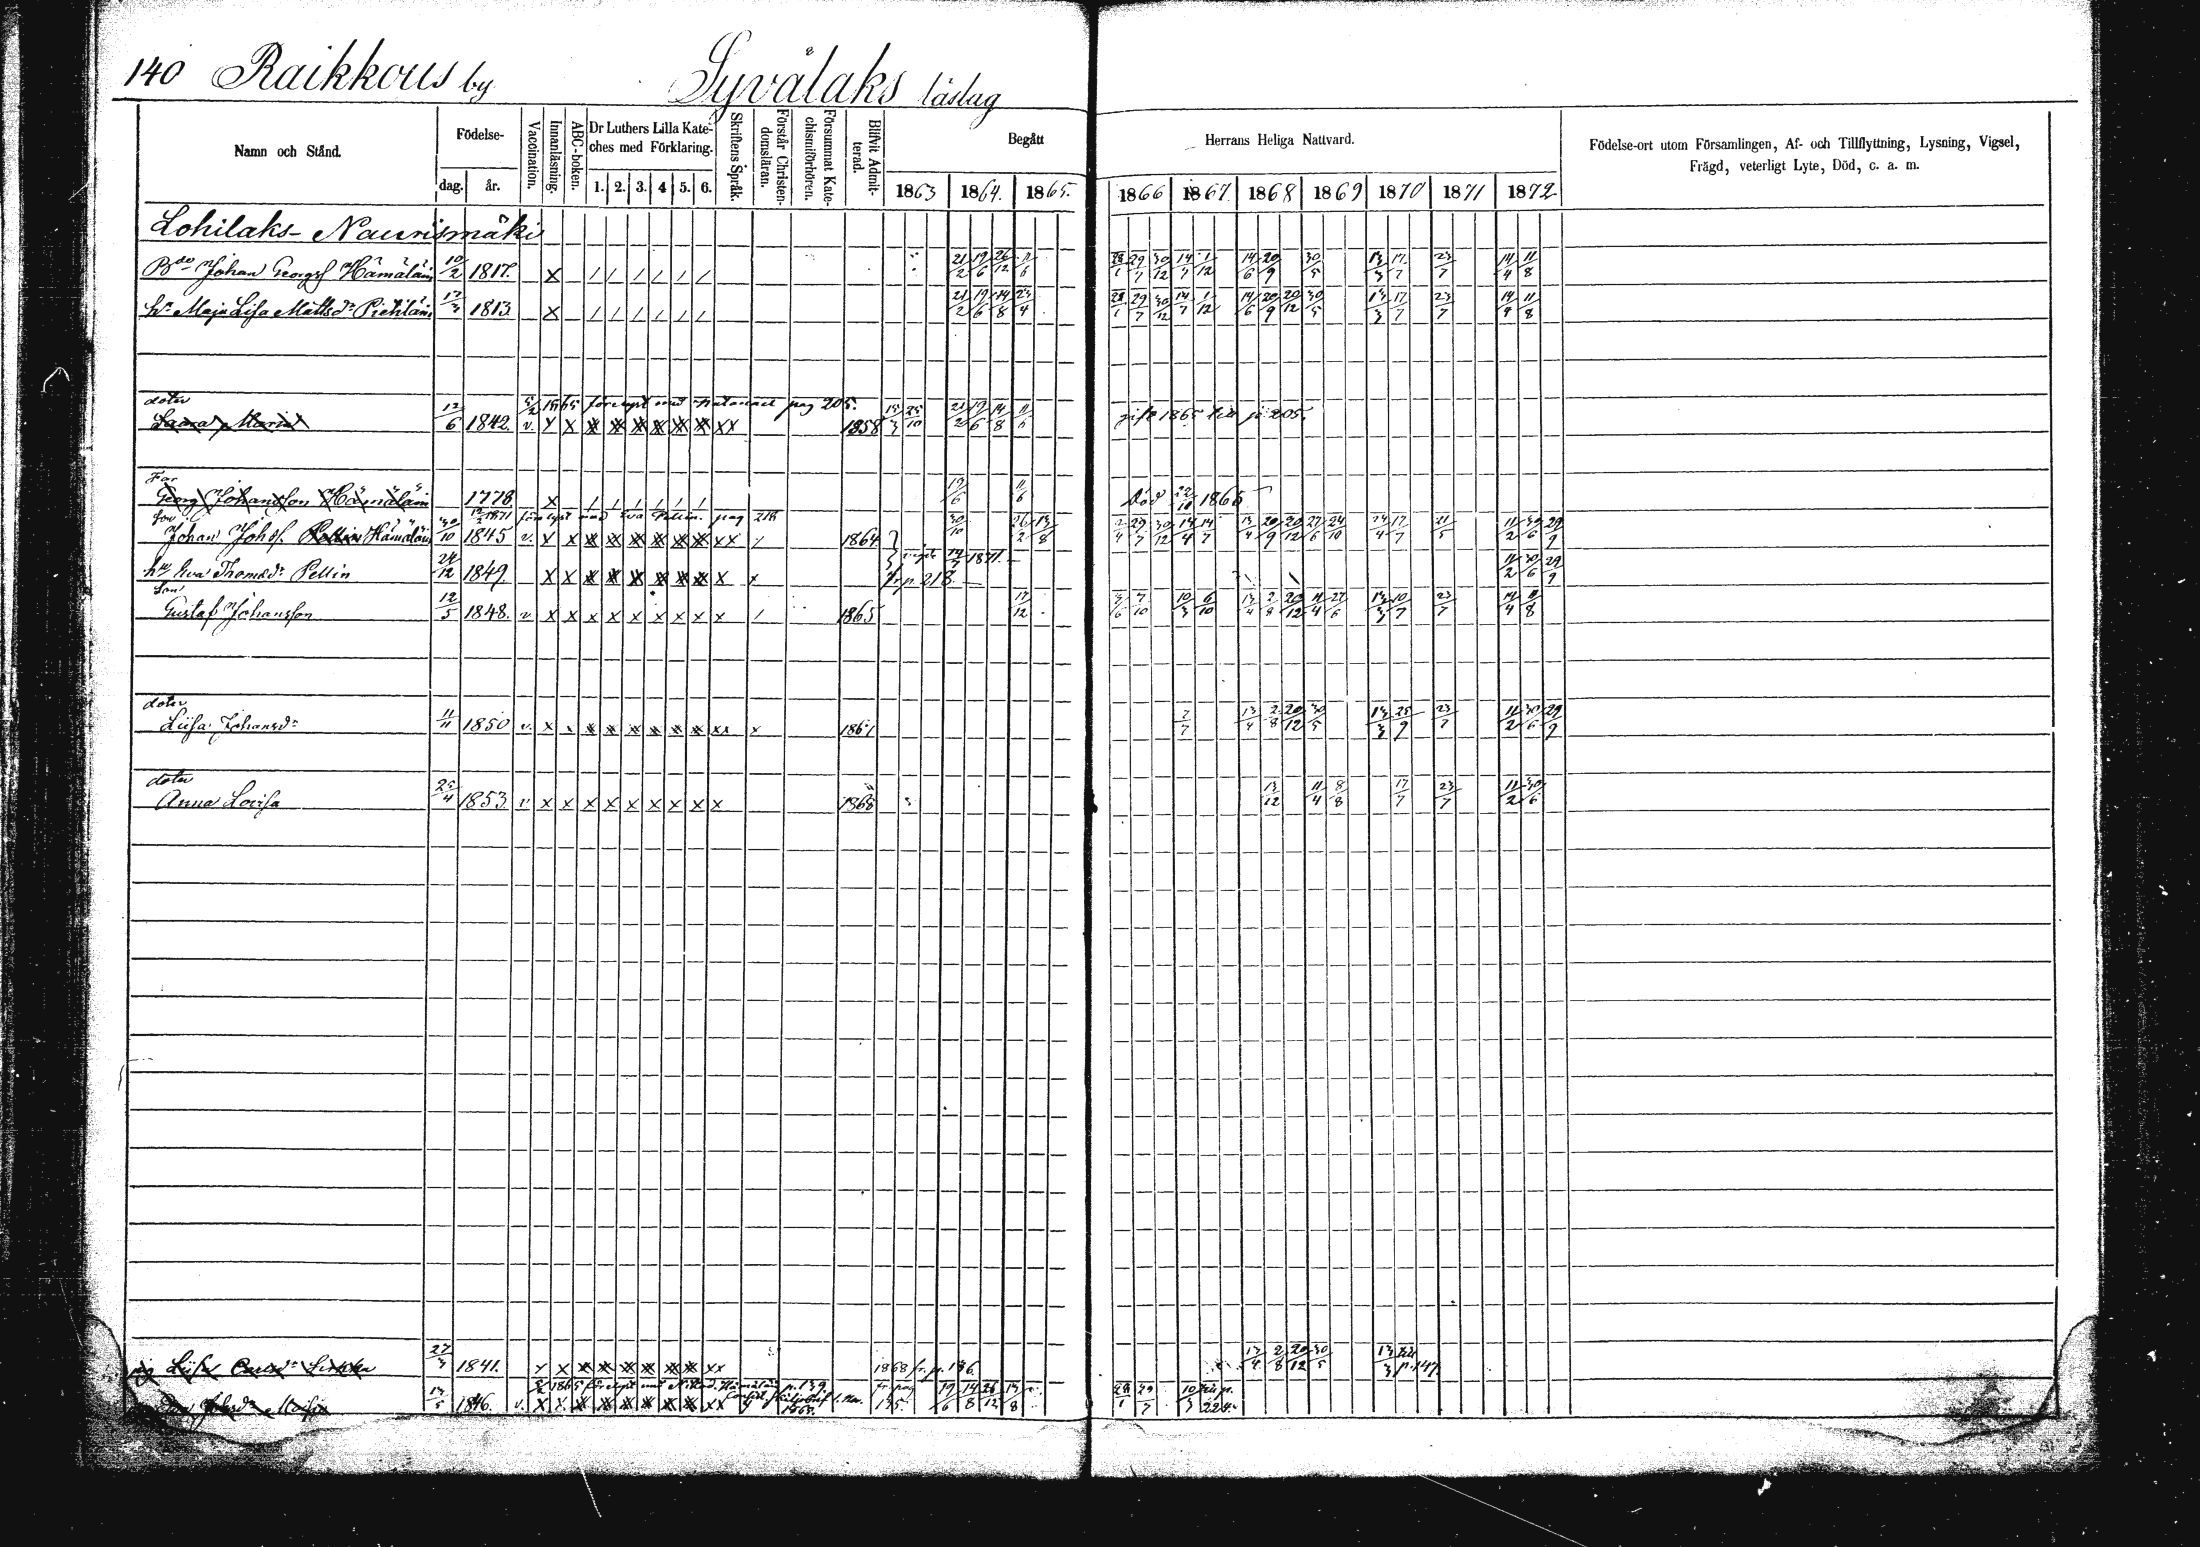 140 Raikkous by Syvälaks läslag
Namn och Stånd. Födelse- Vaccination. Innanläsning. ABC-boken. Dr Luthers Lilla Kate-ches med Förklaring. Skriftens Språk. Förstår Christen-domsläran. Försummat Kate-chismiförhören. Blifvit Admit-terad. Begått Herrans Heliga Nattvard. Födelse-ort utom Församlingen, Af- och Tillflyttning, Lysning, Vigsel,
Frägd, veterligt Lyte, Död, c. a. m.
dag. år. 1. 2. 3. 4 5. 6. 1863 1864. 1865. 1866 1867 1868 1869 1870 1871 1872
Lohilaks- Naurismäki
Bde Johan Georgsf Hämäläin 10/2 1817. x / / / / / / 21/2 19/6 26/12 11/6 28/1 29/7 30/12 14/7 1/12 14/6 20/9 30/5 13/3 17/7 23/7 14/4 11/8
hu Maja Lisa Mattsdr 17/3 1813. x / / / / / / 21/2 19/6 14/8 23/4 28/1 29/7 30/12 14/7 1/12 14/6 20/9 20/12 30/5 13/3 17/7 23/7 14/4 11/8
doter 5/2 1865 förlyst med pag 205.
Maria 12/6 1842. v. x x xx xx xx xx xx xx xx 1858 25/10 21/2 19/6 14/8 11/6 gift 1865 till p. 205.
Far
Georg Johansson Hämäläin 1778 x / / / / / / 19/6 11/6 död 1865
Son 1871 förlyst med Eva Pellin. pag 218
Johan Johsf. Pellin Hämäläin 30/10 1845 v. x x xx xx xx xx xx xx xx / 1864 30/10 26/2 13/8 29/7 30/12 14/4 14/7 13/4 20/9 20/12 27/6 24/10 24/4 17/7 21/5 11/2 30/6 29/9
hu Eva Thomasdr Pellin 24/12 1849. x x xx xx xx xx xx xx x x 1871. fr. p. 218. 11/2 30/6 29/9
Son
Gustaf Johansson 12/5 1848. v x x x x x x x x x / 1865 17/12 7/10 10/3 6/10 13/4 2/8 20/12 11/4 27/6 13/3 10/7 23/7 14/4 11/8
doter
Liisa Johansdr 11/11 1850 v. x x xx xx xx xx xx xx xx x 7/7 13/4 2/8 20/12 30/5 13/3 25/9 23/7 11/2 30/6 29/9
doter
Anna Lovisa 25/4 1853. v x x x x x x x x x 1868 13/12 11/4 8/8 17/7 23/7 11/2 30/6
Liisa Carlsdr 27/3 1841. x x xx xx xx xx xx xx xx 1868 fr. p. 136. 13/4 2/8 20/12 30/5 13/3 till p. 147.
1865 förlyst med p. 139
Johsdr 1846. v. x x xx xx xx xx xx xx xx fr. pag 135. 19/6 14/8 26/12 13/8 28/1 29/7 10/3 till p. 224.